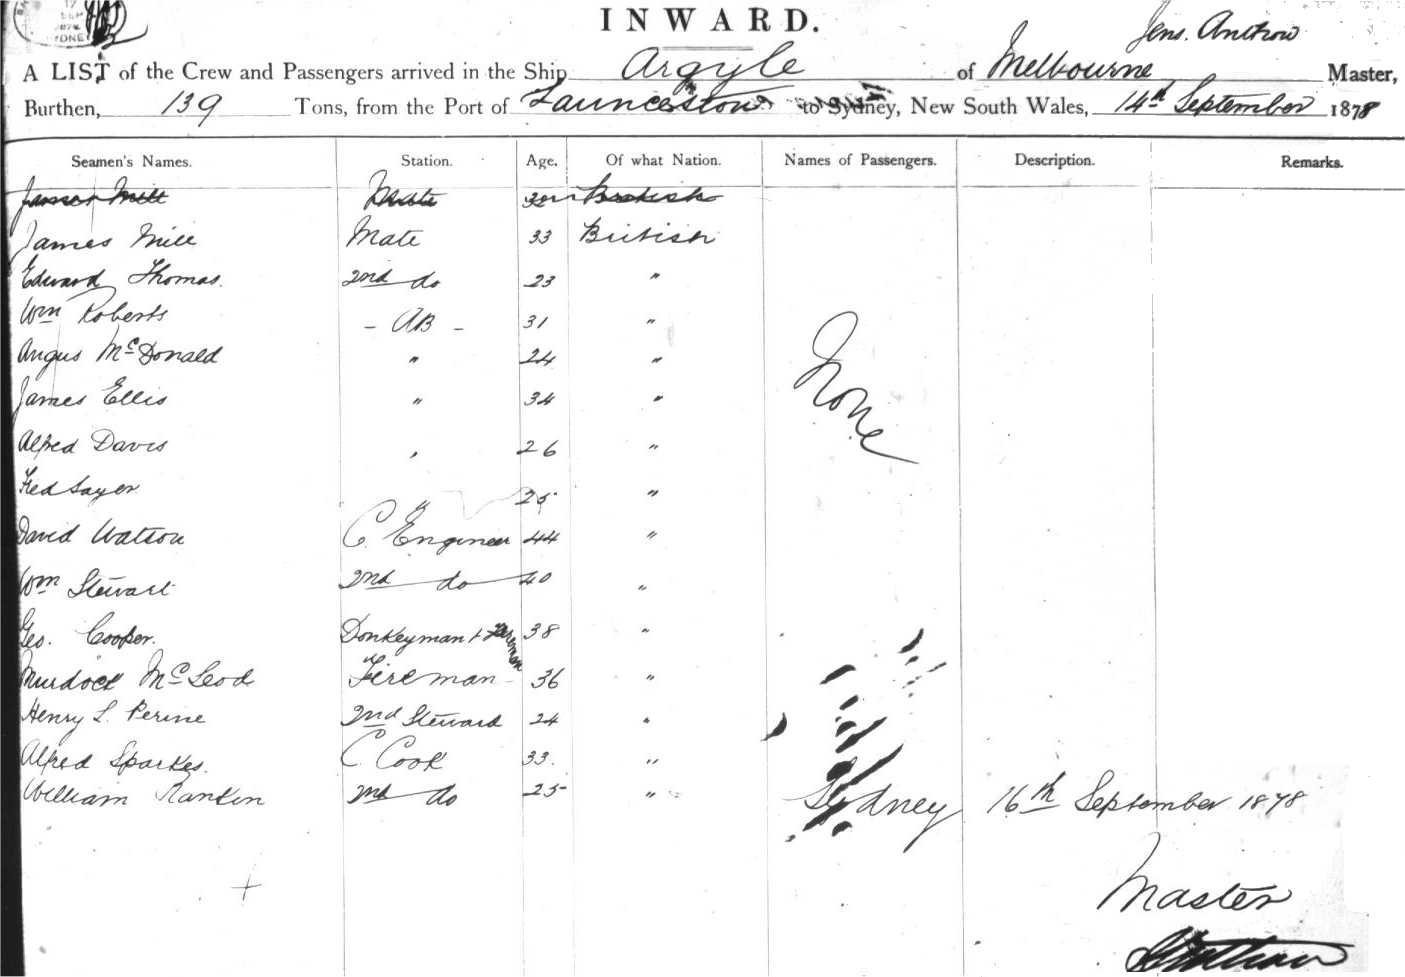 INWARD.
A LIST of the Crew and Passengers arrived in the Ship Argyle of Melbourne Master,
Burthen, 139 Tons, from the Port of Launceston to Sydney, New South Wales, 14th September 1878
Seamen's Names. Station. Age. Of what Nation. Names of Passengers. Description. Remarks.
James Mill Mate British
James Mill Mate 33 British
Edward Thomas. 2nd do 23 "
Wm Roberts - AB - 31 "
Angus McDonald " 24 "
James Ellis " 34 "
None
Alfred Davis " 26 "
Fred Sayer " 25 "
David Watson C. Engineer 44 "
Wm Stewart 2nd do 40 "
Geo. Cooper. Donkeyman & Fireman 38 "
Murdock McLeod Fireman 36 "
Henry L. Perine 2nd Steward 24 "
Alfred Sparkes. C Cook 33. "
William Rankin 2nd do 25 "
Sydney 16th September 1878
Master